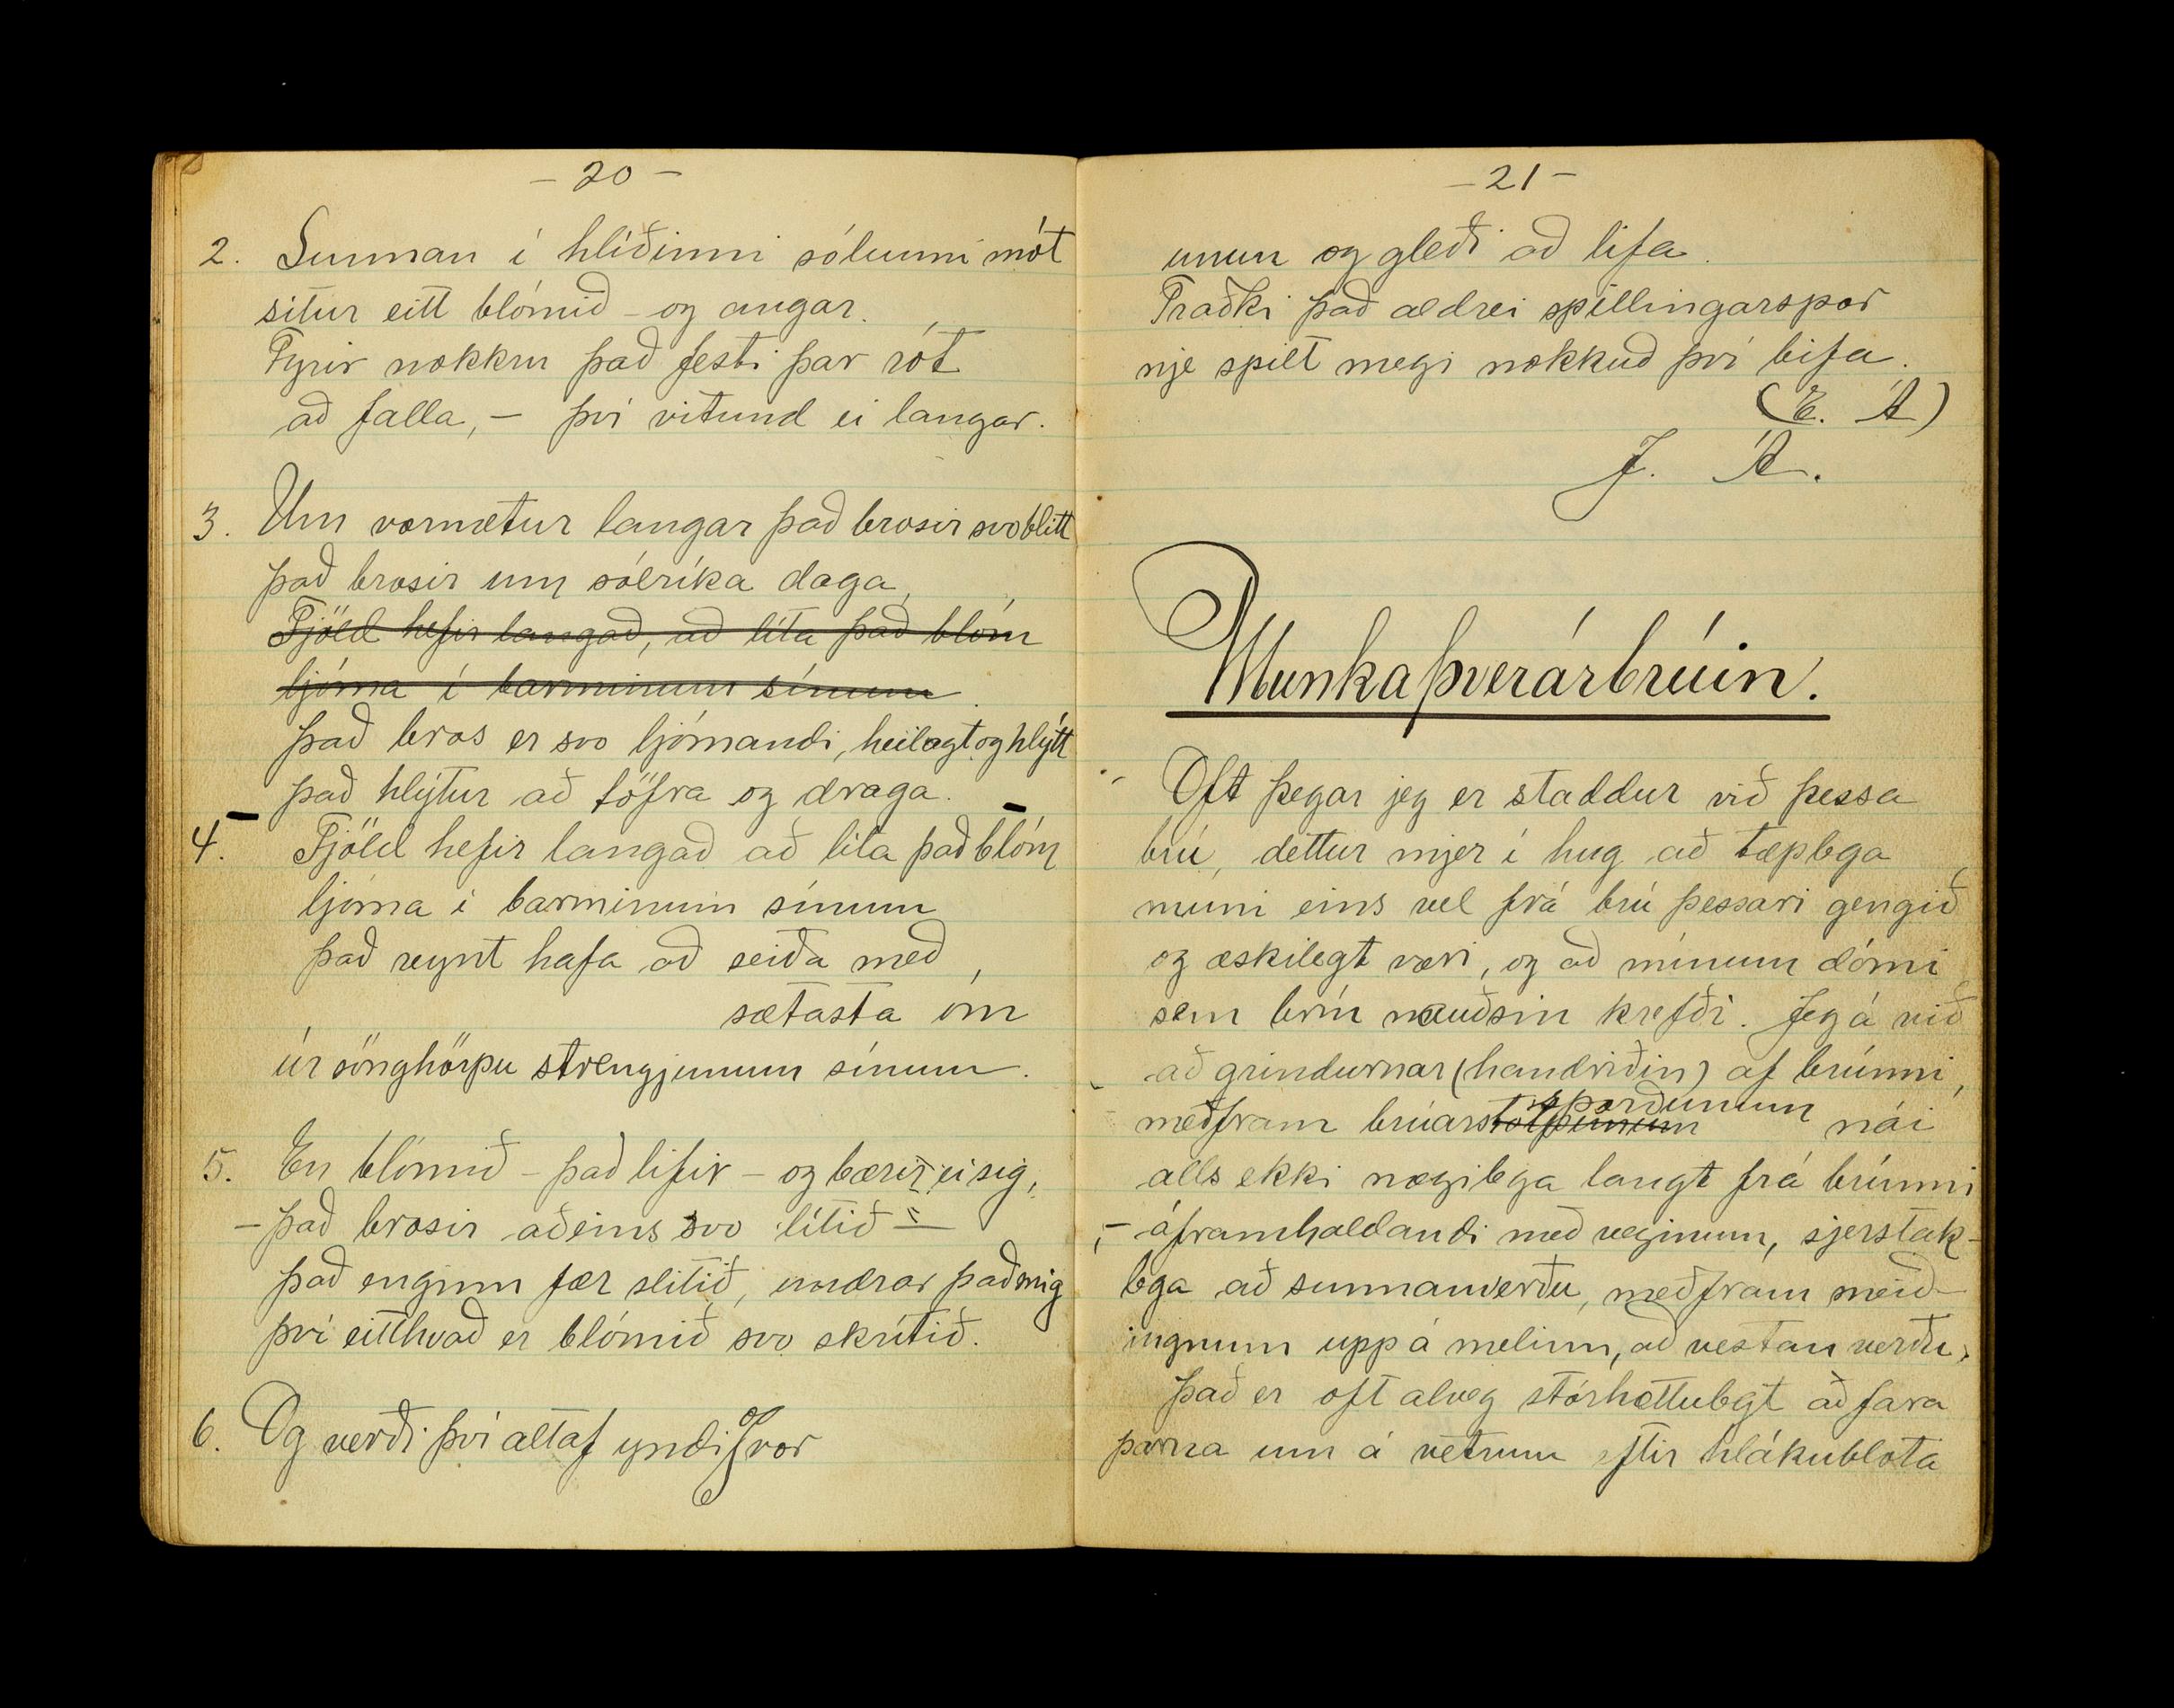 - 20 -
2. Sunnan í hlíðinni sólunni mót
situr eitt blómið - og angar.
Fyrir nokkru það festi þar rót
að falla, - því vitund ei langar.
3. Um vornætur langar það brosir svo blítt
það brosir um sólríka daga,
Fjöld hefir langað, að líta það blóm
ljóma í barminum sínum.
Það bros er svo ljómandi, heilagt og hlýtt
það hlýtur að töfra og draga.
4. Fjöld hefir langað að líta það blóm
ljóma í barminum sínum
það reynt hafa að seiða með,
sætasta óm
úr sönghörpu strengjunum sínum.
5. En blómið - það lifir - og bærir ei sig,
- það brosir aðeins svo lítið -
það enginn fær slitið, undrar það mig
því eitthvað er blómið svo skrítið.
6. Og verði því altaf yndi og vor
- 21 -
unun og gleði að lifa.
Traðki það aldrei spillingarspor
nje spilt megi nokkuð því bifa.
(E. Á)
J. Á.
Munkaþverárbrúin.
Oft þegar jeg er staddur við þessa
brú, dettur mjer í hug að tæplega
muni eins vel frá brú þessari gengið
og æskilegt væri, og að mínum dómi
sem brýn nauðsin krefði. Jeg á við
að grindurnar (handriðin) af brúnni,
meðfram brúarstólpunum sporðunum nái
alls ekki nægilega langt frá brúnni
,- áframhaldandi með veginum, sjerstak-
lega að sunnanverðu, meðfram sneið-
ingnum upp á melinn, að vestan verðu.
Það er oft alveg stórhættulegt að fara
þarna um á vetrum eftir hlákublota